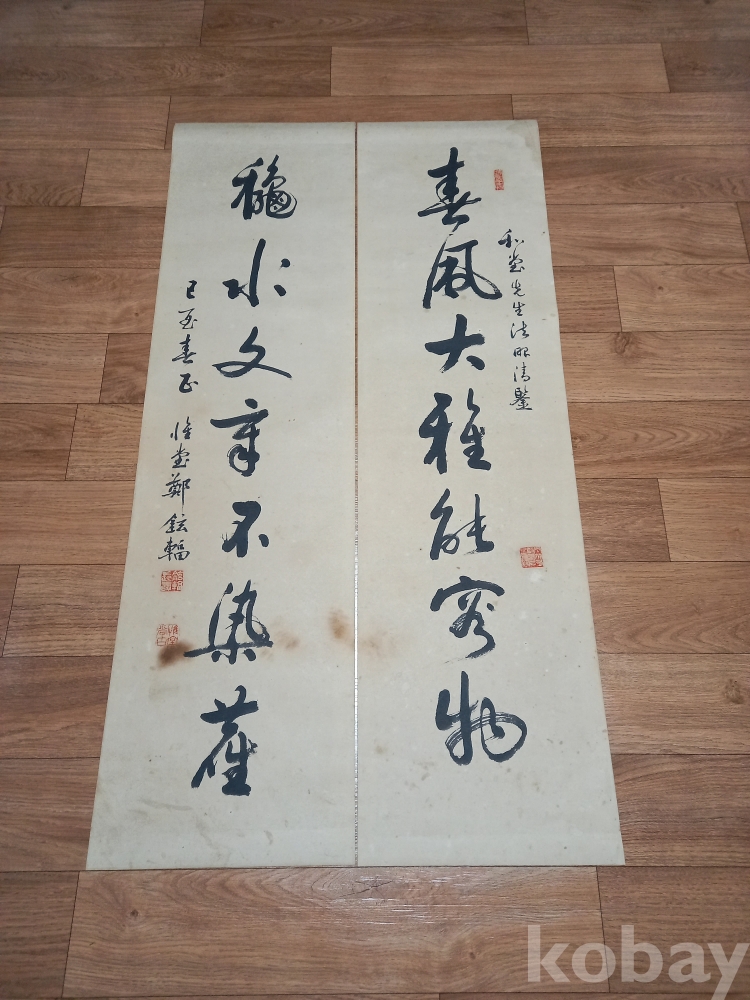 春風大雅能容物
和堂先生法眼清鑒
穐水文章不染塵
己酉春正 惟堂鄭鉉輻
kobay